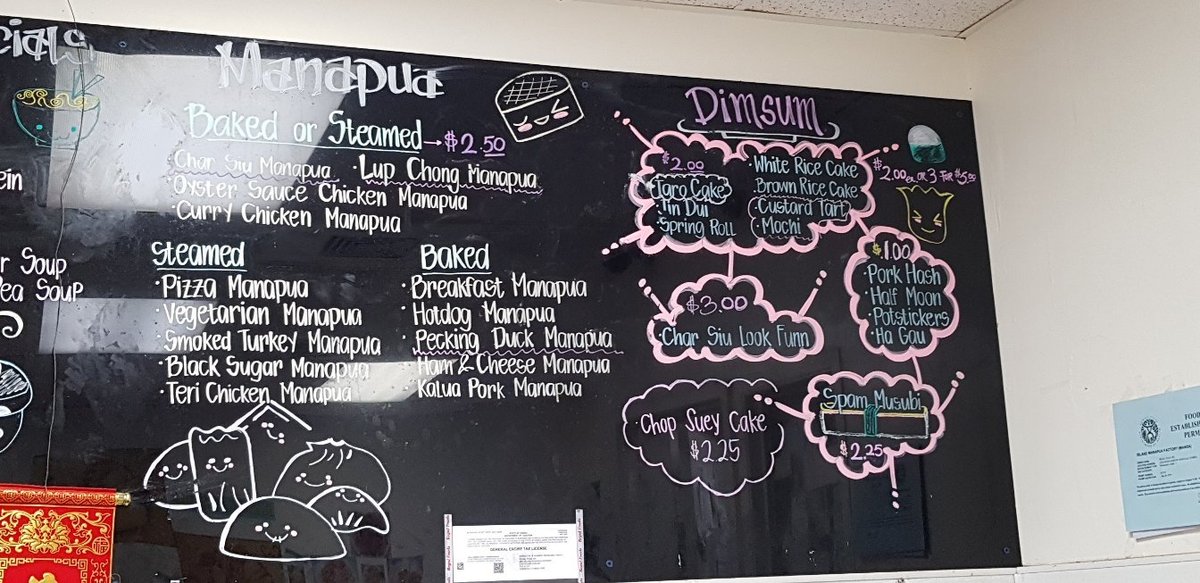 Manapua
Baked or Steamed → $2.50
Char Siu Manapua · Lup Chong Manapua
· Oyster Sauce Chicken Manapua
· Curry Chicken Manapua
Steamed
· Pizza Manapua
· Vegetarian Manapua
· Smoked Turkey Manapua
· Black Sugar Manapua
· Teri Chicken Manapua
Baked
· Breakfast Manapua
· Hotdog Manapua
· Pecking Duck Manapua
· Ham & Cheese Manapua
· Kalua Pork Manapua
Soup
Soup
Dimsum
$2.00
Taro Cake
· Jin Dui
Spring Roll
· White Rice Cake
· Brown Rice Cake
· Custard Tart
· Mochi
$2.00 ea or 3 for $5.50
$1.00
· Pork Hash
· Half Moon
· Potstickers
· Ha Gau
$3.00
· Char Siu Look Funn
· Chop Suey Cake
$2.25
Spam Musubi
$2.25
GENERAL EXCISE TAX LICENSE
FOOD
ESTABLISH
PERM